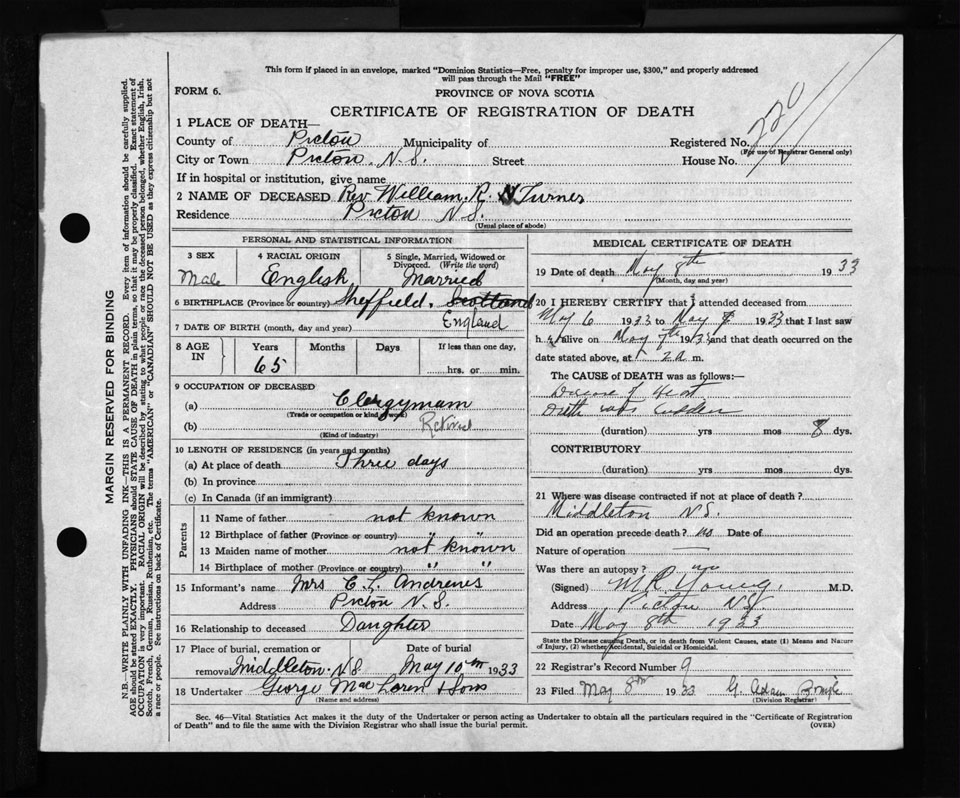 This form if placed in an envelope, marked "Dominion Statistics—Free, penalty for improper use, $300," and properly addressed
will pass through the Mail "FREE"
FORM 6.
PROVINCE OF NOVA SCOTIA
CERTIFICATE OF REGISTRATION OF DEATH
220
1 PLACE OF DEATH—
County of Pictou Municipality of Registered No.
(For use of Registrar General only)
City or Town Pictou. N.S. Street House No.
If in hospital or institution, give name
2 NAME OF DECEASED Rev William. R. Turner
Residence Pictou N.S.
(Usual place of abode)
PERSONAL AND STATISTICAL INFORMATION
3 SEX 4 RACIAL ORIGIN 5 Single, Married, Widowed or
Divorced. (Write the word)
Male English Married
6 BIRTHPLACE (Province or country) Sheffield. Scotland
England
7 DATE OF BIRTH (month, day and year)
8 AGE IN Years Months Days If less than one day,
65 hrs. or min.
9 OCCUPATION OF DECEASED
(a) Clergymam
(Trade or occupation or kind of work)
(b) Retired
(Kind of industry)
10 LENGTH OF RESIDENCE (in years and months)
(a) At place of death Three days
(b) In province
(c) In Canada (if an immigrant)
Parents
11 Name of father not known
12 Birthplace of father (Province or country) " "
13 Maiden name of mother not known
14 Birthplace of mother (Province or country) " "
15 Informant's name Mrs C. L. Andrews
Address Pictou N.S.
16 Relationship to deceased Daughter
17 Place of burial, cremation or Date of burial
removal Middleton. N.S May 10th 1933
18 Undertaker George MacLaren & Sons
(Name and address)
MEDICAL CERTIFICATE OF DEATH
19 Date of death May 8th 1933
(Month, day and year)
20 I HEREBY CERTIFY that I attended deceased from
May 6 1933 to May 8 1933 that I last saw
h alive on May 7th 1933 and that death occurred on the
date stated above, at 2 a m.
The CAUSE of DEATH was as follows:—
Disease of Heart
Death was sudden
(duration) yrs mos 8 dys.
CONTRIBUTORY
(duration) yrs mos dys.
21 Where was disease contracted if not at place of death?
Middleton N.S.
Did an operation precede death? no Date of
Nature of operation —
Was there an autopsy? no
(Signed) M R Young M.D.
Address Pictou NS
Date May 8th 1933
State the Disease causing Death, or in death from Violent Causes, state (1) Means and Nature
of Injury, (2) whether Accidental, Suicidal or Homicidal.
22 Registrar's Record Number 9
23 Filed May 8th 1933 G. Adam
(Division Registrar)
Sec. 46—Vital Statistics Act makes it the duty of the Undertaker or person acting as Undertaker to obtain all the particulars required in the "Certificate of Registration
of Death" and to file the same with the Division Registrar who shall issue the burial permit. (OVER)
MARGIN RESERVED FOR BINDING
N.B.—WRITE PLAINLY WITH UNFADING INK—THIS IS A PERMANENT RECORD. Every item of information should be carefully supplied.
AGE should be stated EXACTLY. PHYSICIANS should STATE CAUSE OF DEATH in plain terms, so that it may be properly classified. Exact statement of
OCCUPATION is very important. RACIAL ORIGIN will be described by stating to what people or race the deceased person belonged, whether English, Irish,
Scotch, French, German, Russian, Ruthenian, etc. The terms "AMERICAN" or "CANADIAN" SHOULD NOT BE USED as they express citizenship but not
a race or people. See instructions on back of Certificate.